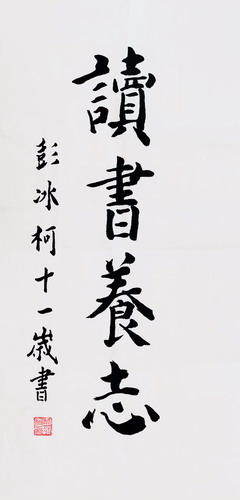 讀書養志
彭冰柯十一歲書